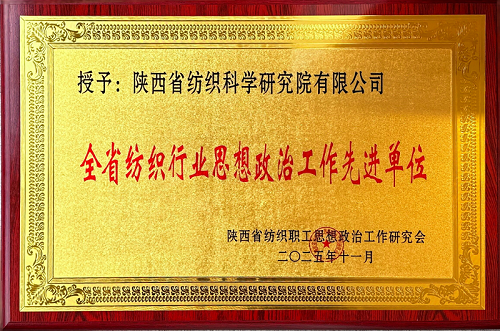 授予：陕西省纺织科学研究院有限公司
全省纺织行业思想政治工作先进单位
陕西省纺织职工思想政治工作研究会
二〇二五年十一月